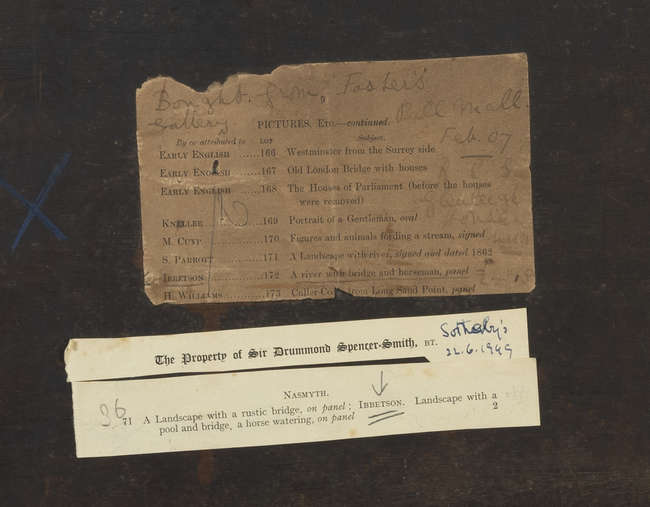 Bought from Foster's
Gallery. Pall Mall.
Feb. 07
9
PICTURES, ETC.—continued.
By or attributed to LOT Subject.
EARLY ENGLISH ......166 Westminster from the Surrey side
EARLY ENGLISH ......167 Old London Bridge with houses
EARLY ENGLISH ......168 The Houses of Parliament (before the houses
were removed)
KNELLER ......169 Portrait of a Gentleman, oval
M. CUYP ......170 Figures and animals fording a stream, signed
S. PARROTT ......171 A Landscape with river, signed and dated 1862
IBBETSON ......172 A river with bridge and horseman, panel
H. WILLIAMS ......173 from Long Sand Point, panel
The Property of Sir Drummond Spencer-Smith, BT.
Sotheby's
22.6.1949
NASMYTH.
36
71 A Landscape with a rustic bridge, on panel; IBBETSON. Landscape with a
pool and bridge, a horse watering, on panel 2